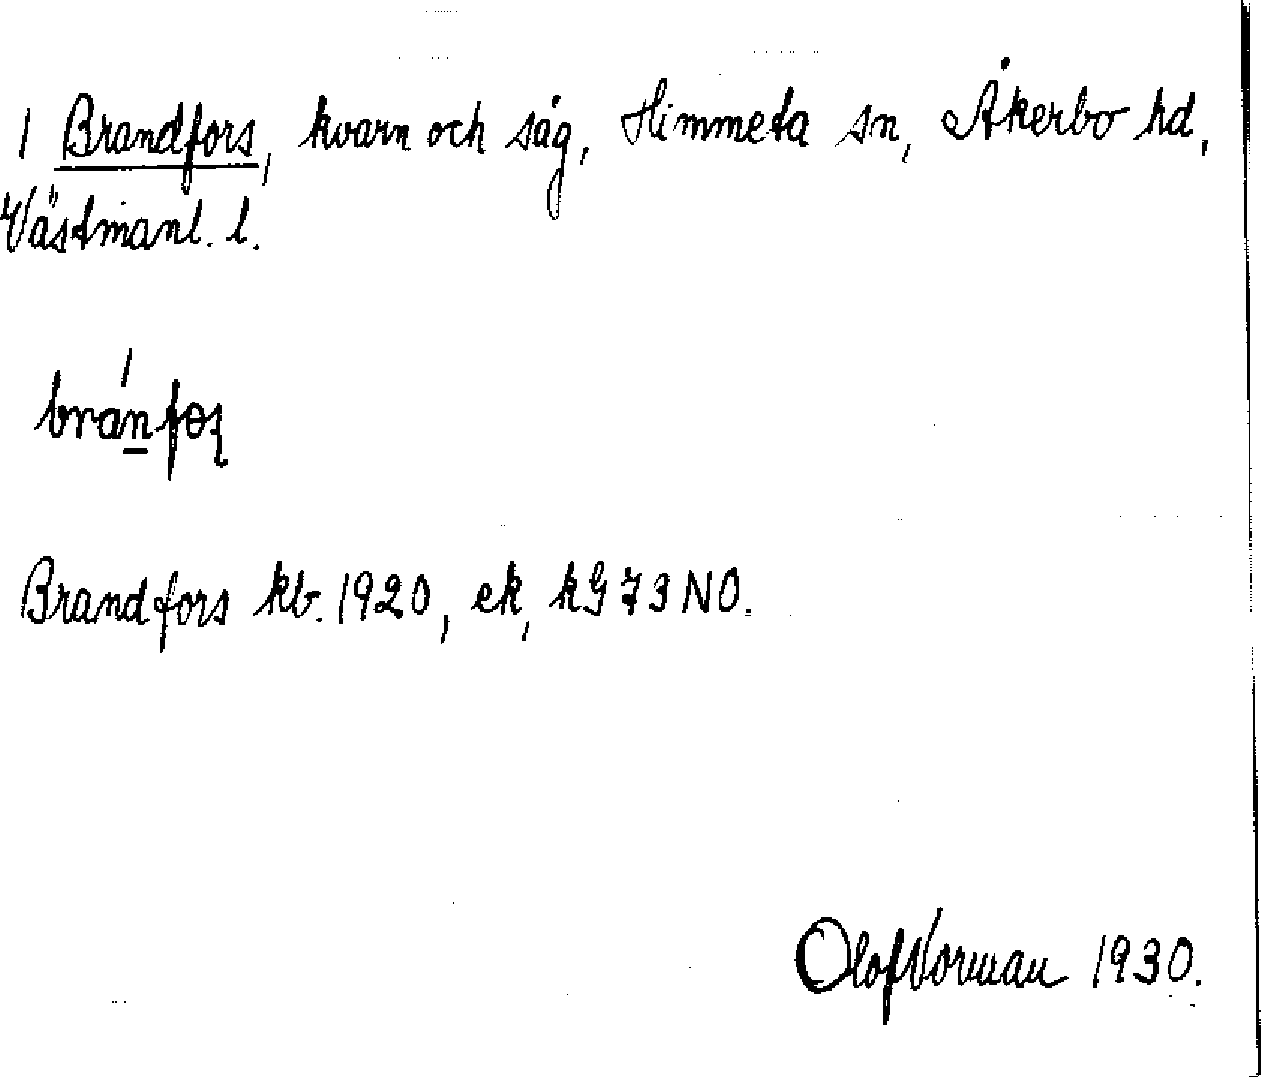 1 Brandfors, kvarn och såg, Himmeta sn, Åkerbo hd,
Västmanl. l.
bránfoʂ
Brandfors kb. 1920, ek, kG 73 NO.
Olof Norman 1930.